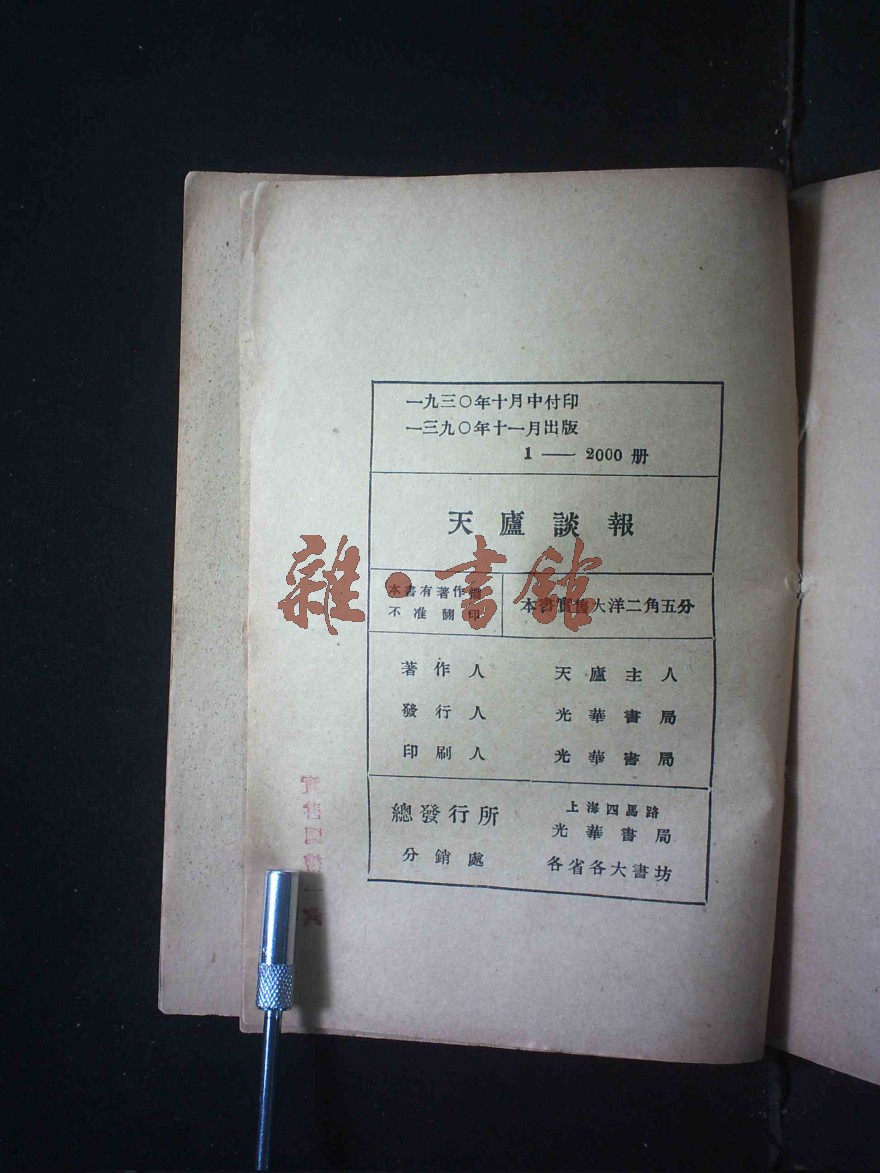 一九三〇年十月中付印
一三九〇年十一月出版
1 — 2000 册
天廬談報
本書有著作權
不准翻印
本書實售大洋二角五分
著作人 天廬主人
發行人 光華書局
印刷人 光華書局
總發行所 上海四馬路
光華書局
分銷處 各省各大書坊
雜·書館